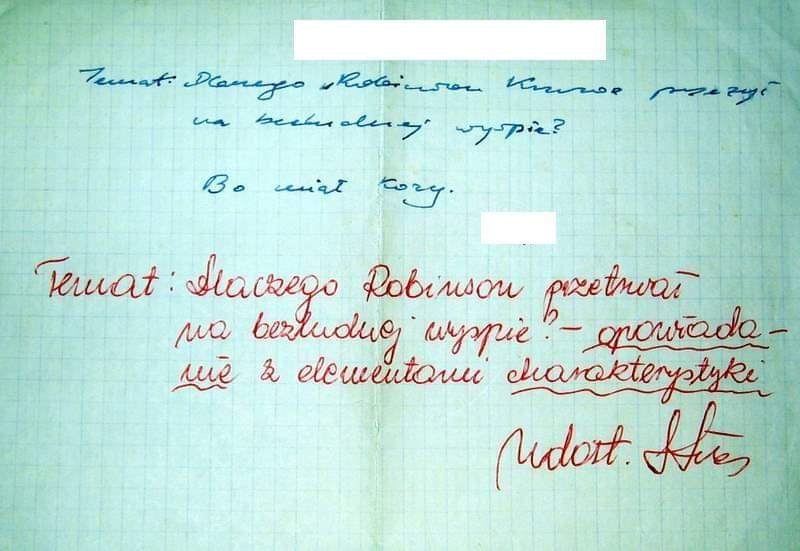 Temat: Dlaczego Robinson Kruzoe przeżył
na bezludnej wyspie?
Bo miał kozy.
Temat: Dlaczego Robinson przetrwał
na bezludnej wyspie? - opowiada-
nie z elementami charakterystyki
ndost.